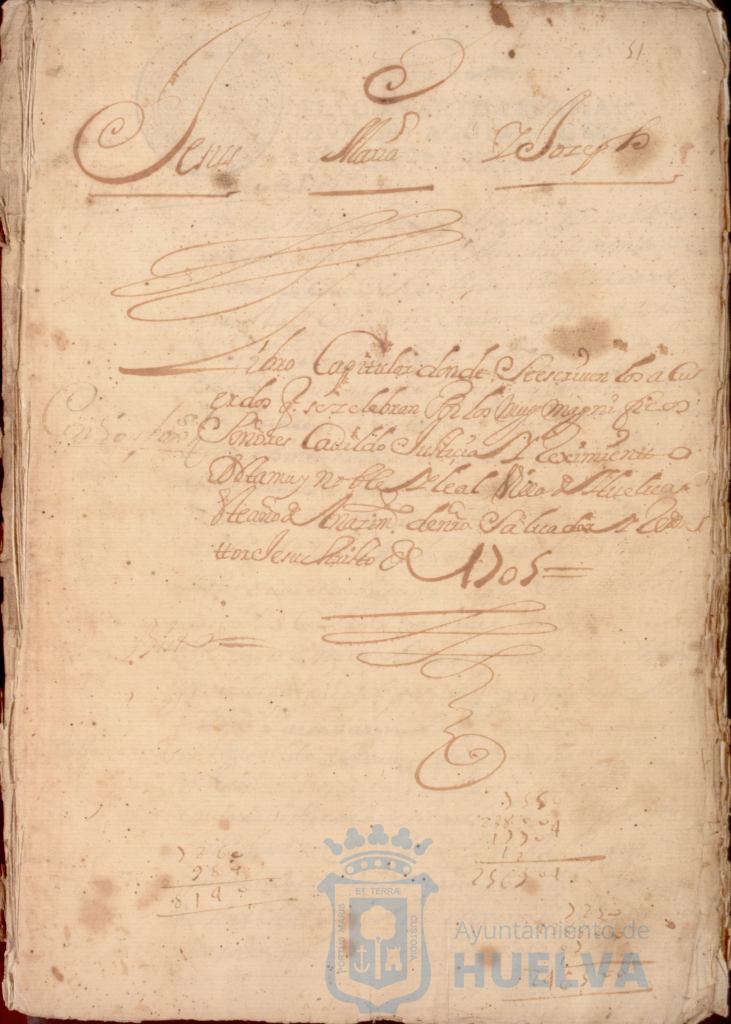 51
Jesus Maria Y Joseph
Libro Capitular donde Se escriven los acu
erdos q. se zelebran Por los Muy Magnificos
Señores Cavildo Justicia Y Reximientto
De esta muy noble Y leal Villa de Huelva
este año de Nazim.to de nro Salvador Y Reden
ttor Jesu Christo de 1705
8140
256304
ET TERRÆ
PORTUS MARIS
CUSTODIA
Ayuntamiento de
HUELVA